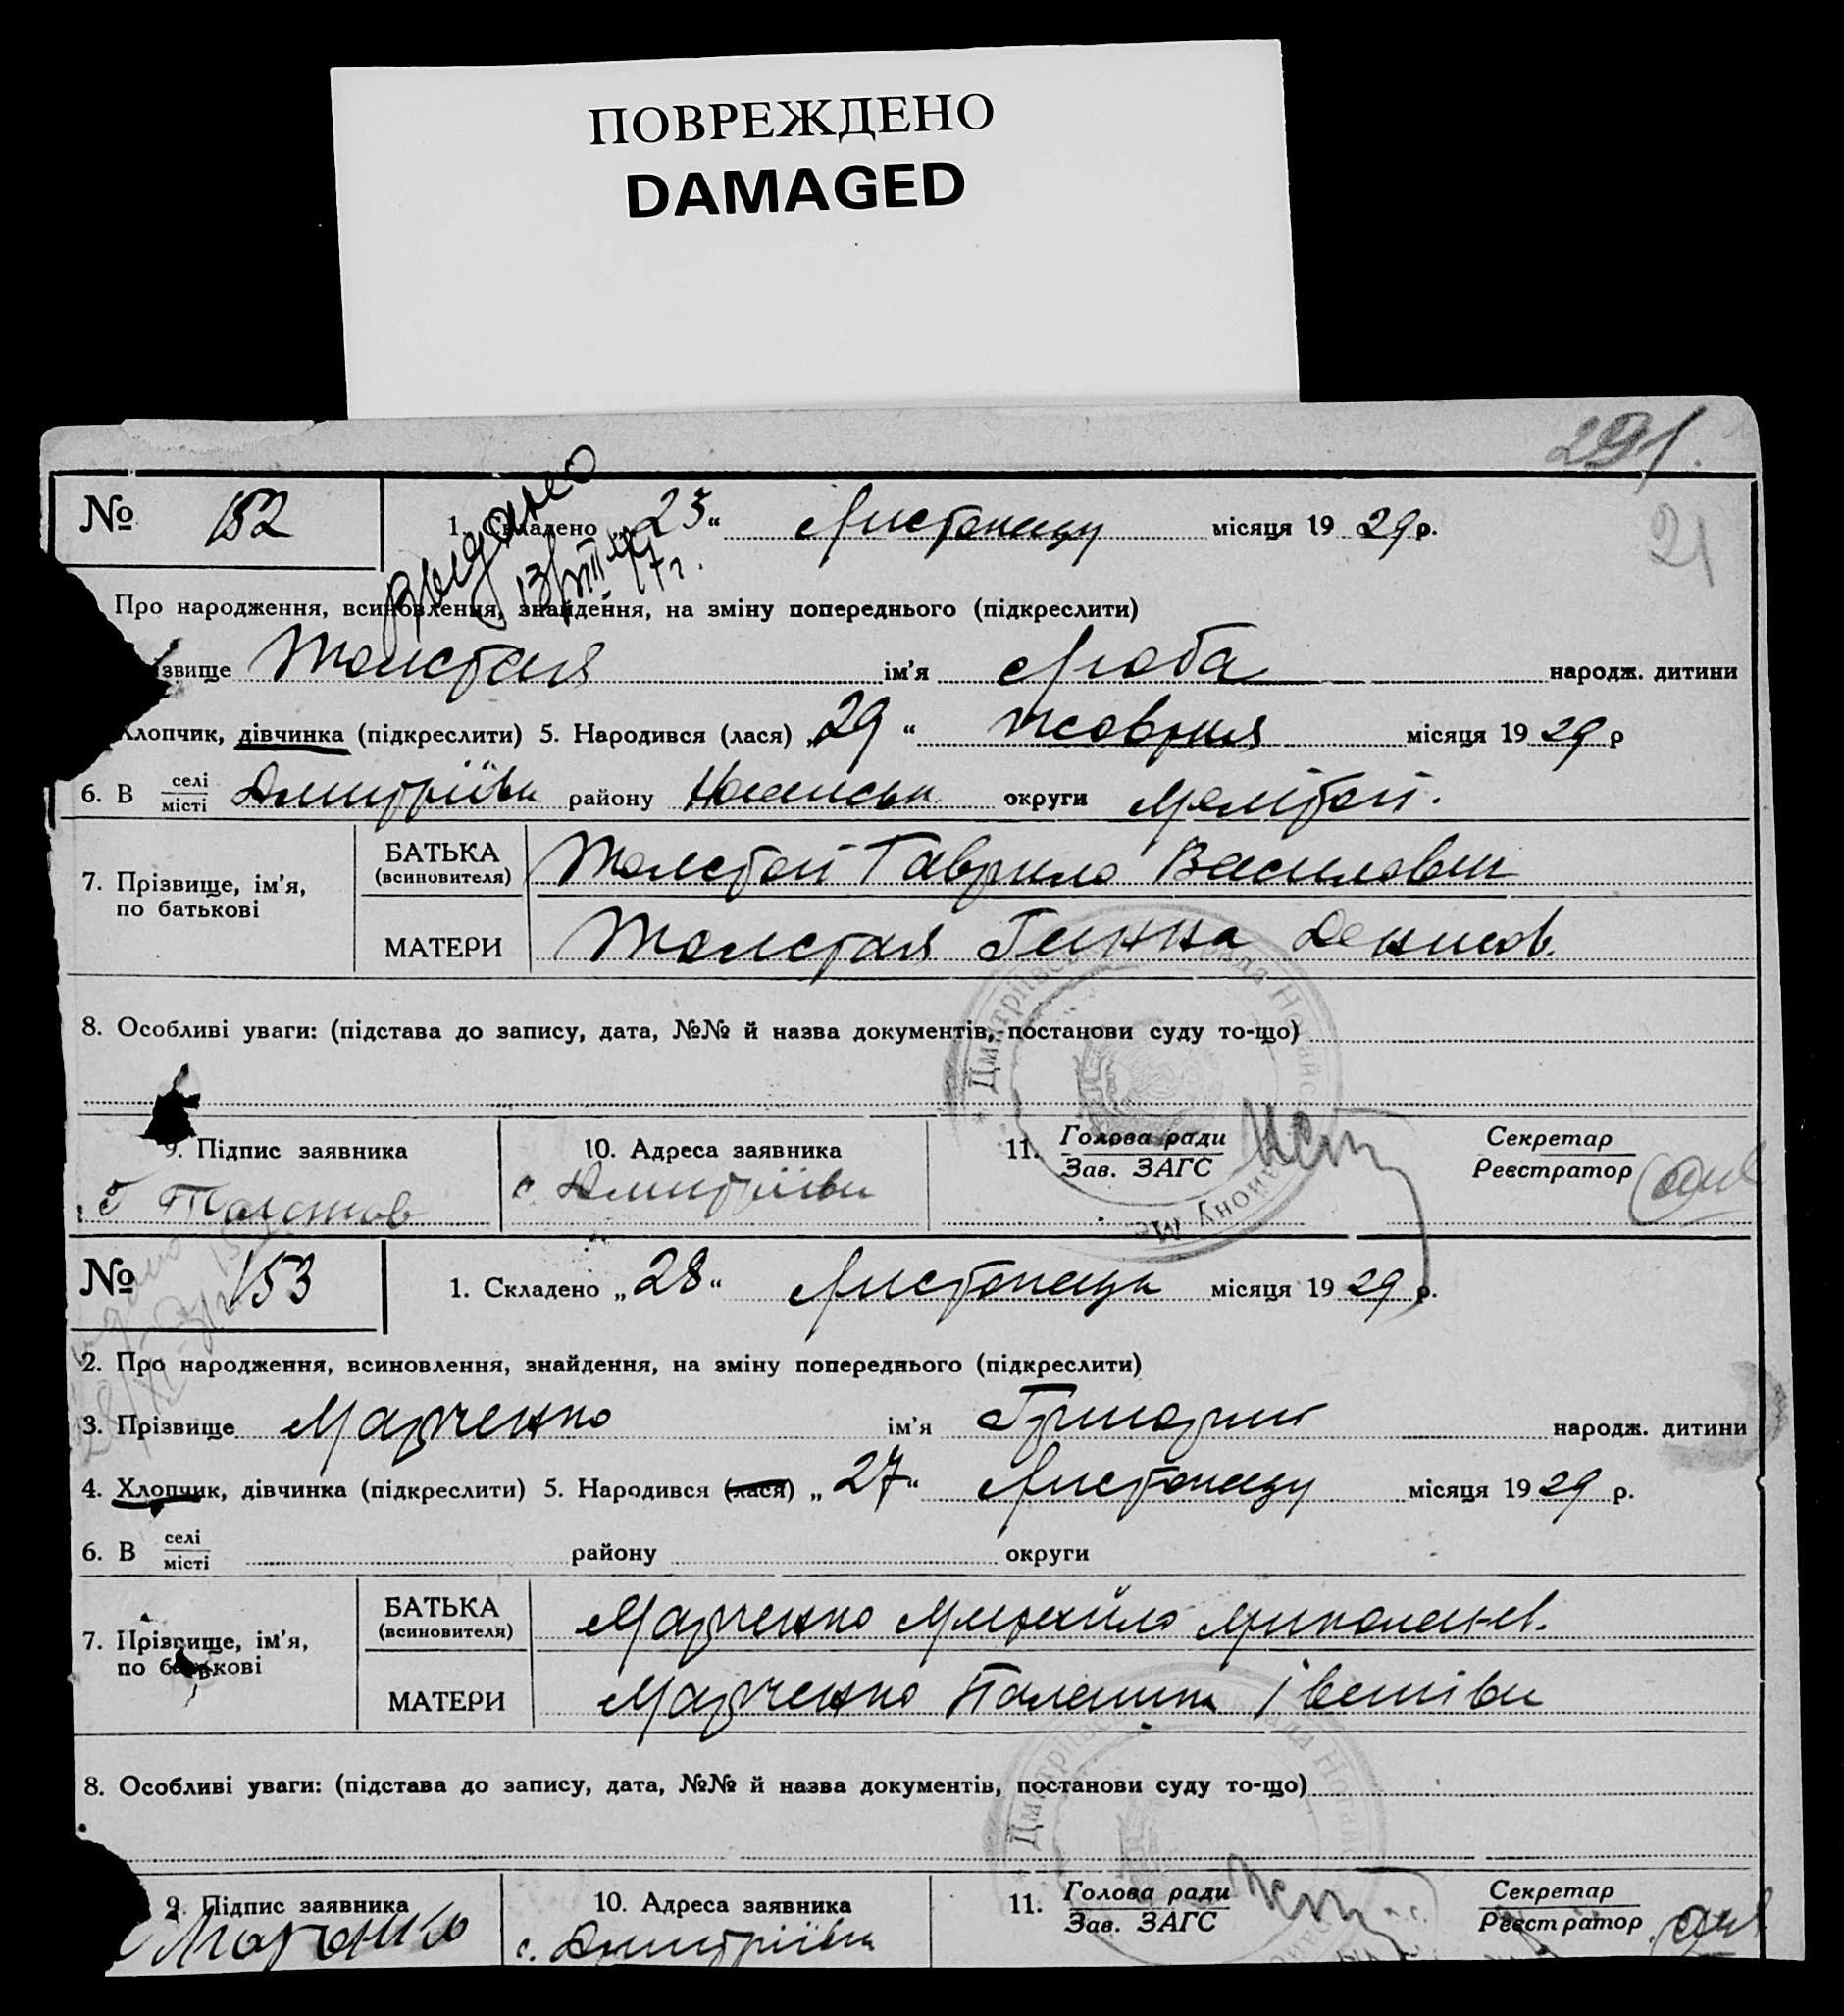 ПОВРЕЖДЕНО
DAMAGED
291.
21
№ 152
1. Складено „23“ Листопаду місяця 1929 р.
видано
13/VIII 47 г.
Про народження, всиновлення, знайдення, на зміну попереднього (підкреслити)
ізвище Толстая ім'я Люба народж. дитини
Хлопчик, дівчинка (підкреслити) 5. Народився (лася) „29“ жовтня місяця 1929 р
6. В селі/місті Дмитріївка району округи Меліт.
7. Прізвище, ім'я, по батькові
БАТЬКА (всиновителя) Толстой Гаврило Василович
МАТЕРИ Толстая Ганна Денисов.
8. Особливі уваги: (підстава до запису, дата, №№ й назва документів, постанови суду то-що)
9. Підпис заявника 10. Адреса заявника 11. Голова ради/Зав. ЗАГС Секретар/Реєстратор
Г Толстов с Дмитріївка
№ 153
1. Складено „28“ Листопада місяця 1929 р.
2. Про народження, всиновлення, знайдення, на зміну попереднього (підкреслити)
3. Прізвище Марченко ім'я Григорий народж. дитини
4. Хлопчик, дівчинка (підкреслити) 5. Народився (лася) „27“ Листопаду місяця 1929 р.
6. В селі/місті району округи
7. Прізвище, ім'я, по батькові
БАТЬКА (всиновителя) Марченко Михайло Миколаєв.
МАТЕРИ Марченко Палашка Іванівна
8. Особливі уваги: (підстава до запису, дата, №№ й назва документів, постанови суду то-що)
9. Підпис заявника 10. Адреса заявника 11. Голова ради/Зав. ЗАГС Секретар/Реєстратор
Марченко с. Дмитріївка